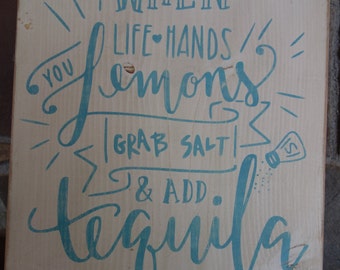 WHEN
LIFE HANDS
YOU Lemons
GRAB SALT
& ADD
tequila